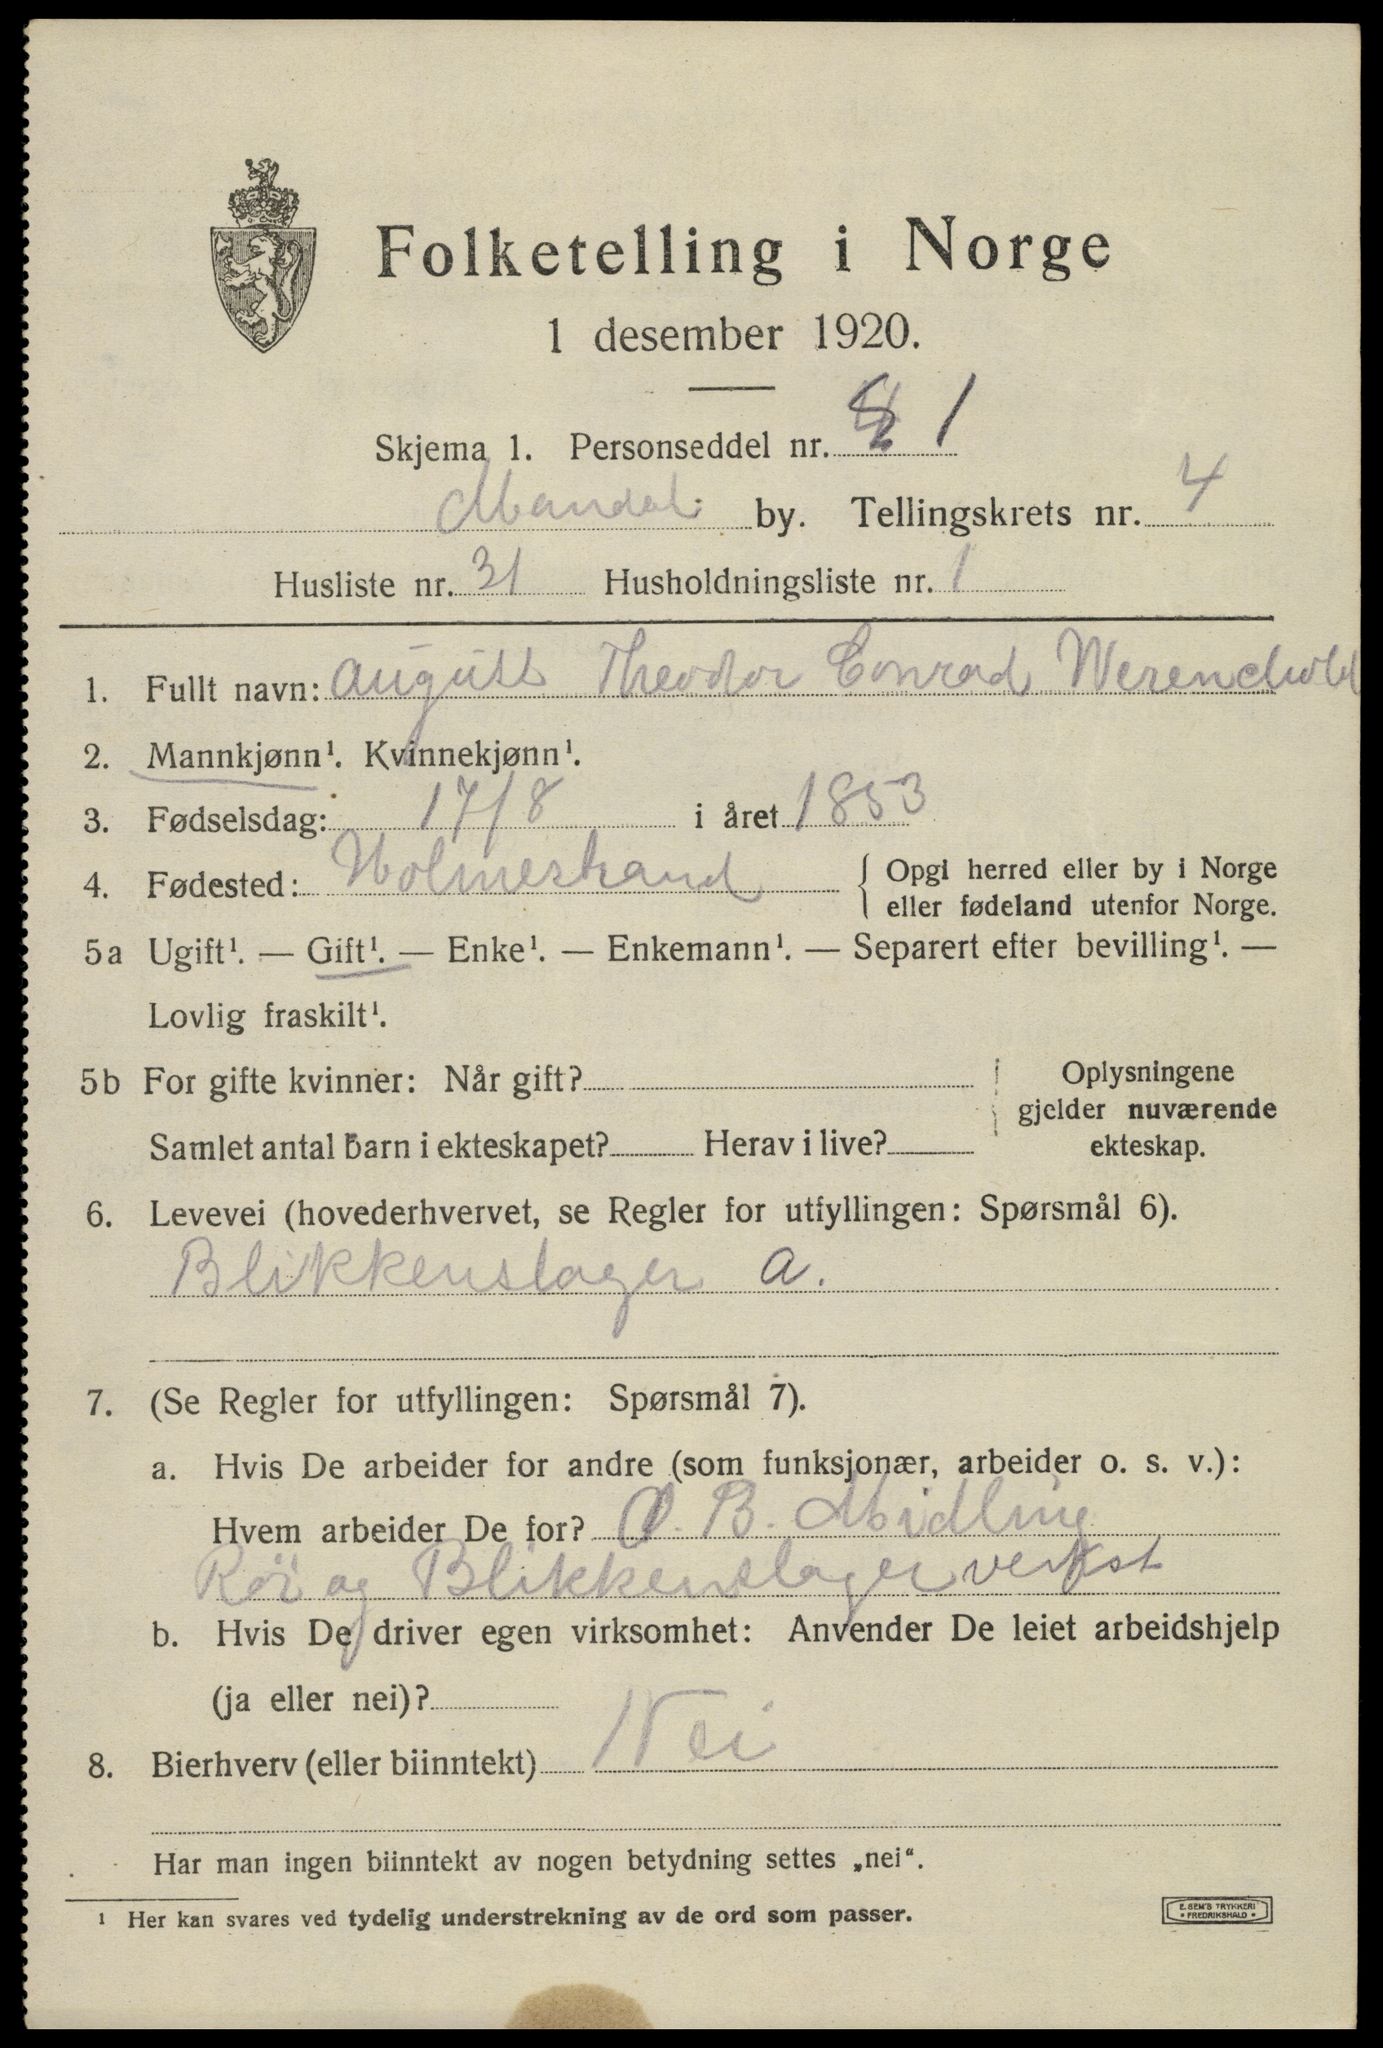 Folketelling i Norge
1 desember 1920.
Skjema 1. Personseddel nr. 1
Mandal by. Tellingskrets nr. 4
Husliste nr. 31 Husholdningsliste nr. 1
1. Fullt navn: August Theodor Conrad Werenskold
2. Mannkjønn¹. Kvinnekjønn¹.
3. Fødselsdag: 17/8 i året 1853
4. Fødested: Holmestrand { Opgi herred eller by i Norge
eller fødeland utenfor Norge.
5a Ugift¹. — Gift¹. — Enke¹. — Enkemann¹. — Separert efter bevilling¹. —
Lovlig fraskilt¹.
5b For gifte kvinner: Når gift? Oplysningene
gjelder nuværende
Samlet antal barn i ekteskapet? Herav i live? ekteskap.
6. Levevei (hovederhvervet, se Regler for utfyllingen: Spørsmål 6).
Blikkenslager a.
7. (Se Regler for utfyllingen: Spørsmål 7).
a. Hvis De arbeider for andre (som funksjonær, arbeider o. s. v.):
Hvem arbeider De for? O. B. Midling
Rör og Blikkenslager verkst
b. Hvis De driver egen virksomhet: Anvender De leiet arbeidshjelp
(ja eller nei)?
8. Bierhverv (eller biinntekt) Nei
Har man ingen biinntekt av nogen betydning settes „nei“.
¹ Her kan svares ved tydelig understrekning av de ord som passer.
E. SEM'S TRYKKERI
• FREDRIKSHALD •